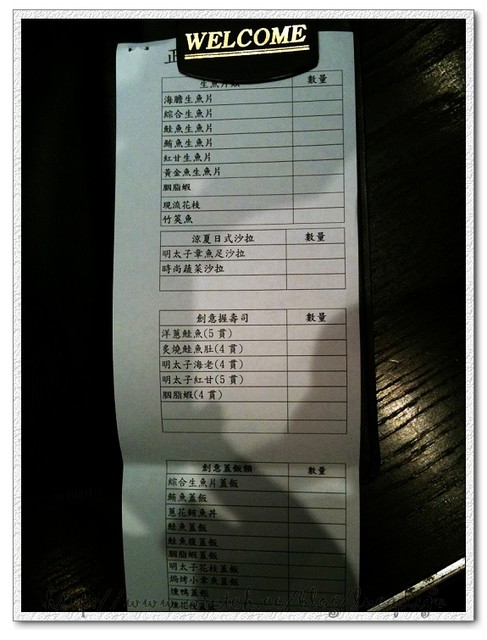 WELCOME
正
生魚片類 數量
海膽生魚片
綜合生魚片
鮭魚生魚片
鮪魚生魚片
紅甘生魚片
黃金魚生魚片
胭脂蝦
現流花枝
竹筴魚
涼夏日式沙拉 數量
明太子章魚足沙拉
時尚蔬菜沙拉
創意握壽司 數量
洋蔥鮭魚(5貫)
炙燒鮭魚肚(4貫)
明太子海老(4貫)
明太子紅甘(5貫)
胭脂蝦(4貫)
創意蓋飯類 數量
綜合生魚片蓋飯
鮪魚蓋飯
蔥花鮪魚丼
鮭魚蓋飯
鮭魚腹蓋飯
胭脂蝦蓋飯
明太子花枝蓋飯
焗烤小章魚蓋飯
燻鴨蓋飯